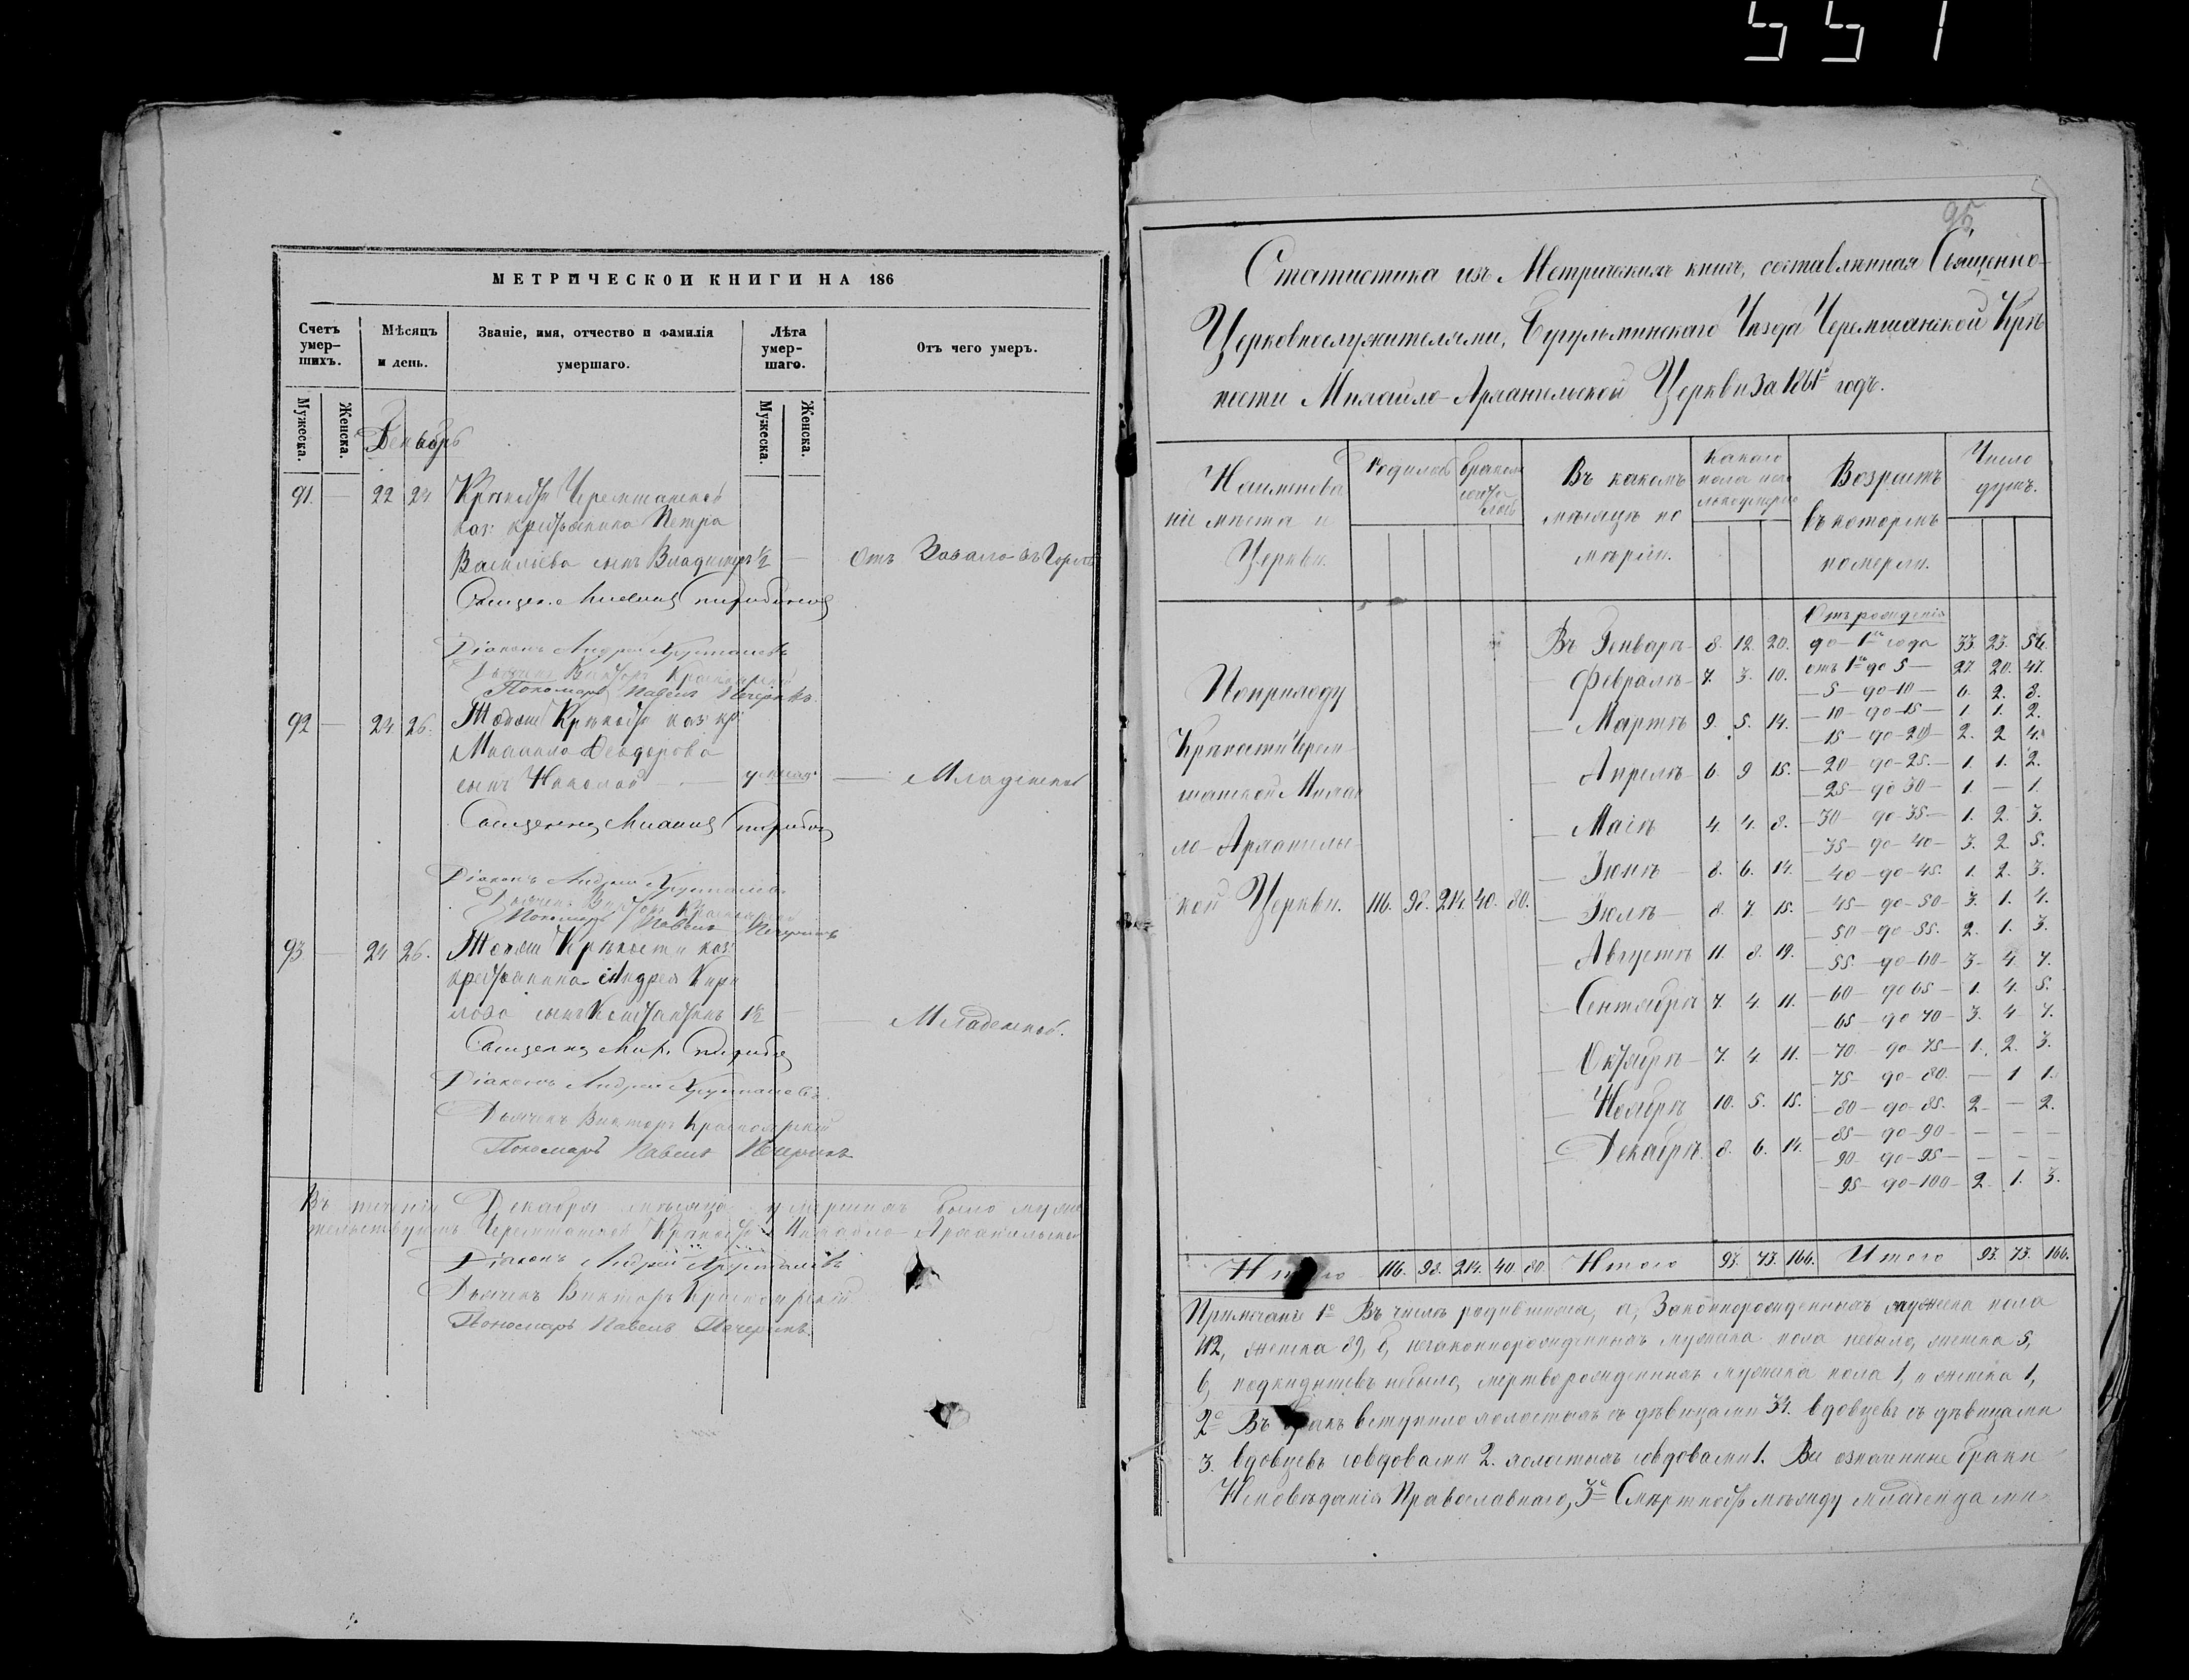 551
МЕТРИЧЕСКОИ КНИГИ НА 186
Счетъ умер-шихъ. Мѣсяцъ и день. Званіе, имя, отчество и фамилія умершаго. Лѣта умер-шаго. Отъ чего умеръ.
Мужеска. Женска. Мужеска. Женска.
Декабрь
91. — 22 24 Крѣпости Черемшанской
каз: крестьянина Петра
Васильева сынъ Владимиръ ½ — Отъ Завала въ Горлѣ
Діаконъ Андрей Хрусталевъ
Дьячекъ Викторъ Красноярскій
Пономарь Павелъ Печеринъ.
92 — 24. 26. Тойже Крѣпости каз: кр:
Михаила Ѳеодорова
сынъ Николай — — Младенской
Діаконъ Андрей Хрусталевъ.
Дьячекъ Викторъ Красноярскій
Пономарь Павелъ Печеринъ
93 — 24 26. Тойже Крѣпости каз:
крестьянина Андрея Кири
лова сынъ Константинъ 1½ — — Младенской.
Діаконъ Андрей Хрусталевъ.
Дьячекъ Викторъ Красноярскій
Пономарь Павелъ Печеринъ
Въ теченіи Декабря мѣсяца умершихъ было
Черемшанской Крѣпости Михайло-Архангельской
Діаконъ Андрей Хрусталевъ
Дьячекъ Викторъ Красноярскій
Пономарь Павелъ Печеринъ.
95
Статистика изъ Метрическихъ книгъ, составленная Священно-
Церковнослужителями, Бугульминскаго Уѣзда Черемшанской Крѣ
пости Михайло-Архангельской Церкви за 1861й годъ.
Наименова
ніе мѣста и
Церкви.
Родилось
бракомъ
Въ какомъ
мѣсяцѣ по
мерли.
Какого
пола
Возрастъ
въ которомъ
померли.
Число
душъ.
По приходу
Крѣпости Черем-
шанской Михай
ло-Архангельс-
кой Церкви. 116. 98. 214. 40. 80.
Въ Генварѣ 8. 12. 20.
— Февралѣ 7. 3. 10.
— Мартѣ 9. 5. 14.
— Апрелѣ 6. 9 15.
— Маіѣ 4. 4. 8.
— Іюнѣ 8. 6. 14.
— Іюлѣ 8. 7. 15.
— Августѣ 11. 8. 19.
— Сентябрѣ 7. 4. 11.
— Октябрѣ 7. 4. 11.
— Ноябрѣ 10. 5. 15.
— Декабрѣ 8. 6. 14.
Отъ рожденія
до 1го года 33. 23. 56.
отъ 1го до 5 — 27. 20. 47.
— 5 — до 10 — 6. 2. 8.
— 10 — до 15 — 1. 1. 2.
— 15 — до 20 — 2. 2 4.
— 20 — до 25. — 1. 1. 2.
— 25 — до 30 — 1. — 1.
— 30 — до 35 — 1. 2. 3.
— 35 — до 40 — 3. 2 5.
— 40 — до 45. 1. 2. 3.
— 45 — до 50 — 3. 1. 4.
— 50 — до 55. 2. 1. 3.
— 55. — до 60 — 3. 4. 7.
— 60 — до 65 — 1. 4. 5.
— 65 — до 70 — 3. 4 7.
— 70 — до 75 — 1. 2. 3.
— 75 — до 80. — 1 1.
— 80 — до 85. 2. — 2.
— 85 — до 90 — — — —
— 90 — до 95 — — — —
— 95 — до 100 — 2. 1. 3.
Итого 116. 98. 214. 40. 80. Итого 93. 73. 166. Итого 93. 73. 166.
Примѣчаніе 1е Въ числѣ родившихся, а, Законнорожденныхъ мужеска пола
112, женска 89, б, незаконнорожденныхъ мужеска пола небыло, женска 5,
в, подкидышевъ небыло, мертворожденныхъ мужеска пола 1, и женска 1,
2е Въ бракъ вступило холостыхъ съ дѣвицами 34. вдовцевъ съ дѣвицами
3. вдовцевъ со вдовами 2. холостыхъ со вдовами 1. Всѣ означенные браки
Исповѣданія Православнаго, 3е Смертность между младенцами